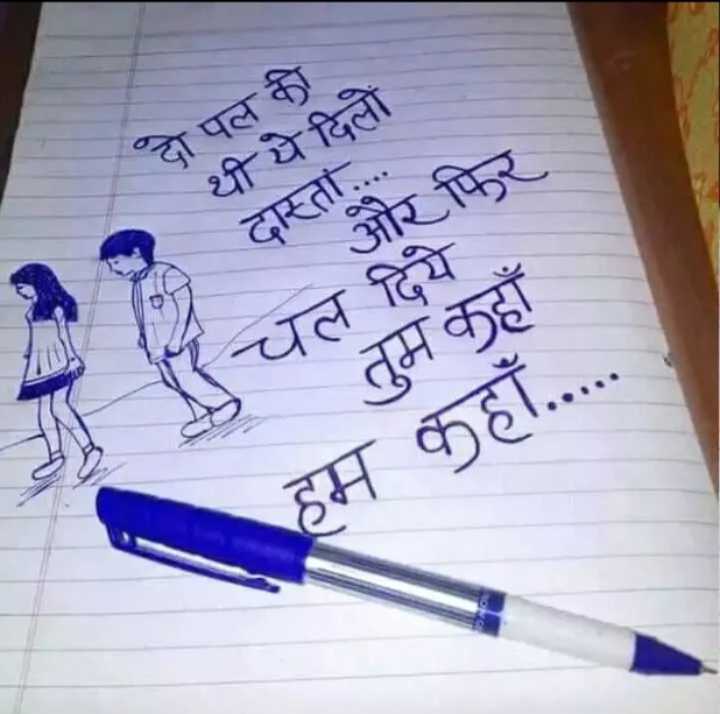 दो पल की
थी ये दिलों
दास्तां....
और फिर
चल दिये
तुम कहाँ
हम कहाँ.....